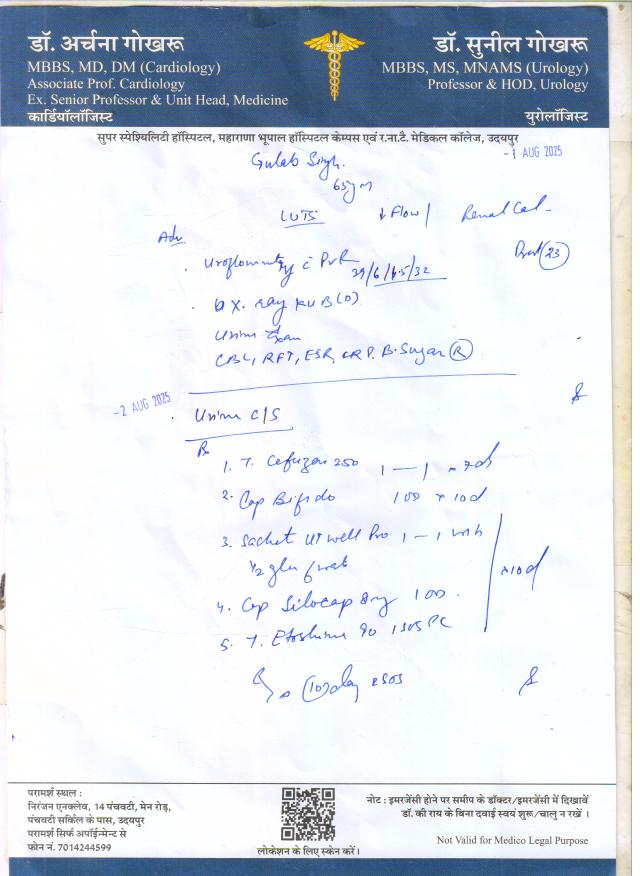 डॉ. अर्चना गोखरू
MBBS, MD, DM (Cardiology)
Associate Prof. Cardiology
Ex. Senior Professor & Unit Head, Medicine
कार्डियॉलॉजिस्ट
डॉ. सुनील गोखरू
MBBS, MS, MNAMS (Urology)
Professor & HOD, Urology
युरोलॉजिस्ट
सुपर स्पेश्यिलिटी हॉस्पिटल, महाराणा भूपाल हॉस्पिटल केम्पस एवं र.ना.टै. मेडिकल कॉलेज, उदयपुर
-1 AUG 2025
Gulab Singh.
65y m
LUTS ↓ Flow/ Renal Cal-
Adv.
Uroflowmetry c PVR
X. ray KUB (D)
Urine Exam
CBC, RFT, ESR, CRP, B. Sugar (R)
-2 AUG 2025
Urine C/S
1. T. 250 1-1 x 7d
2. Cap Bifido 100 x 10d
3. Sachet Utwell Pro 1-1 with
1/2 glass
x10d
4. Cap Silocap 8mg 100
5. T. Etoshine 90 1 SOS PC
परामर्श स्थल :
निरंजन एनक्लेव, 14 पंचवटी, मेन रोड़,
पंचवटी सर्किल के पास, उदयपुर
परामर्श सिर्फ अपॉईन्मेन्ट से
फोन नं. 7014244599
लोकेशन के लिए स्केन करें।
नोट : इमरजेंसी होने पर समीप के डॉक्टर/इमरजेंसी में दिखावें
डॉ. की राय के बिना दवाई स्वयं शुरू/चालु न रखें ।
Not Valid for Medico Legal Purpose